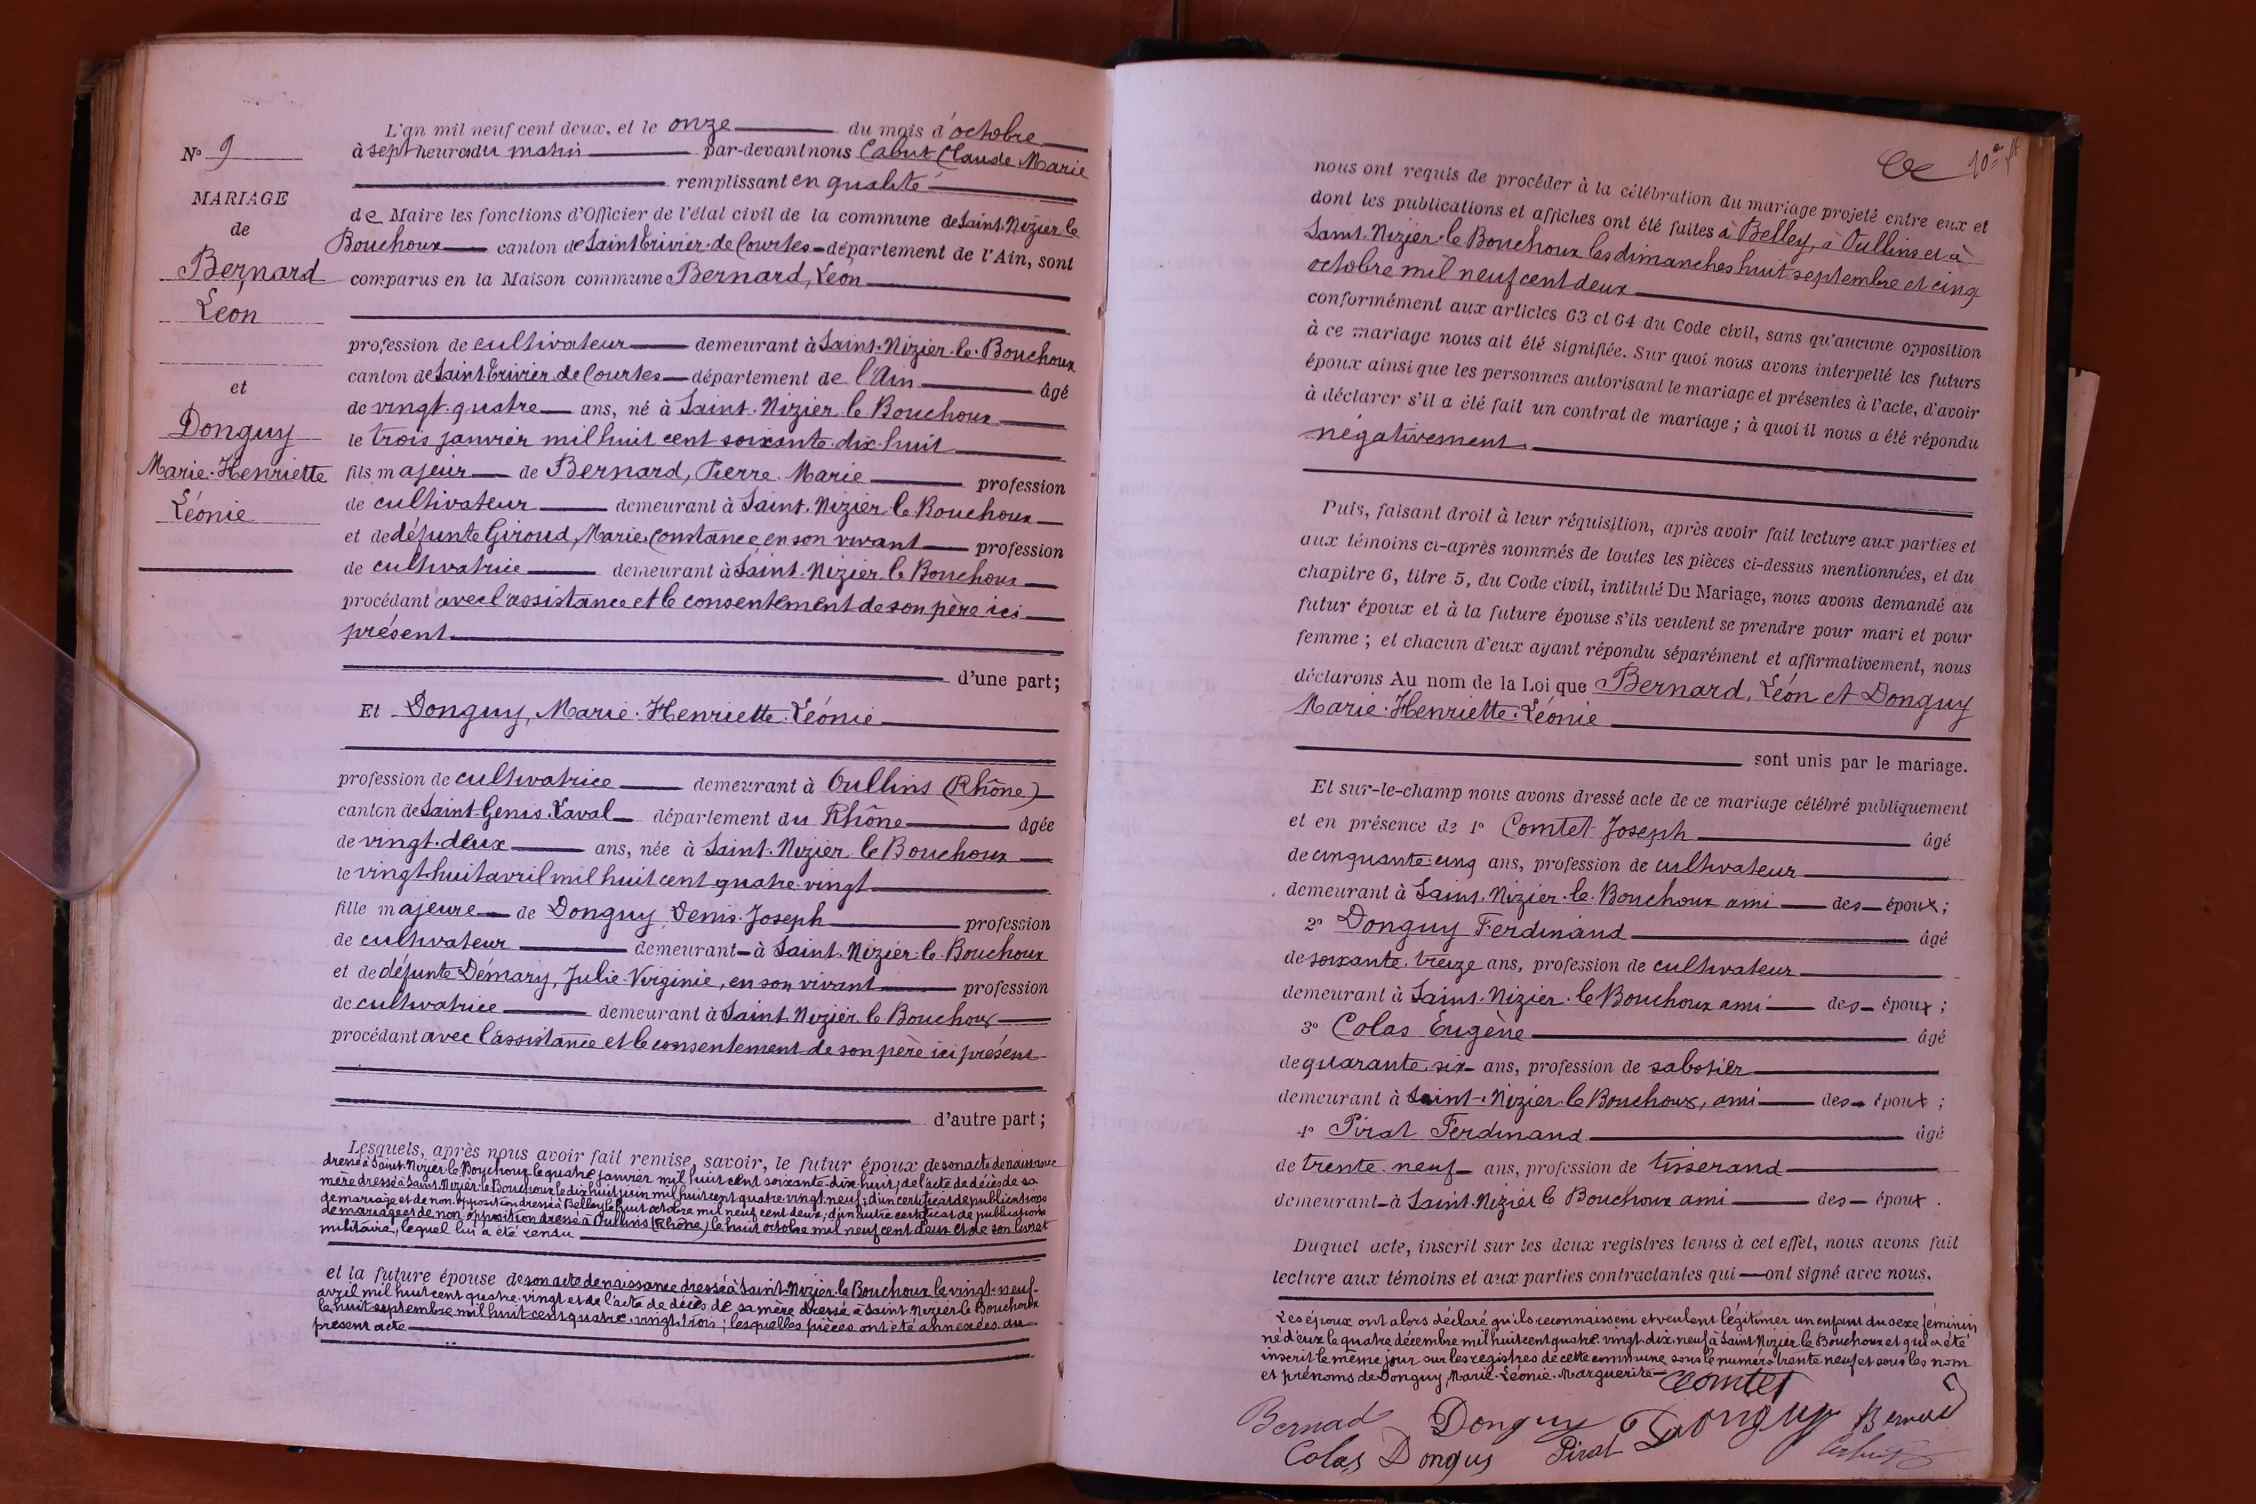 L'an mil neuf cent deux, et le onze du mois d'octobre
à sept heures du matin par-devant nous Cabut Claude Marie
remplissant en qualité
de Maire les fonctions d'Officier de l'état civil de la commune de Saint-Nizier le
Bouchoux canton de Saint Trivier-de Courtes département de l'Ain, sont
comparus en la Maison commune Bernard, Léon
profession de cultivateur demeurant à Saint-Nizier-le-Bouchoux
canton de Saint Trivier de Courtes département de l'Ain âgé
de vingt-quatre ans, né à Saint-Nizier le Bouchoux
le trois janvier mil huit cent soixante-dix-huit
fils majeur de Bernard, Pierre-Marie profession
de cultivateur demeurant à Saint-Nizier le Bouchoux
et de défunte Giroud, Marie-Constance en son vivant profession
de cultivatrice demeurant à Saint-Nizier le Bouchoux
procédant avec l'assistance et le consentement de son père ici
présent
d'une part;
Et Donguy, Marie-Henriette-Léonie
profession de cultivatrice demeurant à Oullins (Rhône)
canton de Saint-Genis-Laval département du Rhône âgée
de vingt-deux ans, née à Saint-Nizier le Bouchoux
le vingt-huit avril mil huit cent quatre-vingt
fille majeure de Donguy Denis-Joseph profession
de cultivateur demeurant à Saint-Nizier-le-Bouchoux
et de défunte Démary, Julie-Virginie, en son vivant profession
de cultivatrice demeurant à Saint Nizier le Bouchoux
procédant avec l'assistance et le consentement de son père ici présent
d'autre part;
Lesquels, après nous avoir fait remise, savoir, le futur époux de son acte de naissance
dressé à Saint-Nizier le Bouchoux le quatre janvier mil huit cent soixante-dix-huit; de l'acte de décès de sa
mère dressé à Saint-Nizier le Bouchoux le dix huit juin mil huit cent quatre-vingt-neuf; d'un certificat de publications
de mariage et de non opposition dressé à Belley le huit octobre mil neuf cent deux; d'un autre certificat de publications
de mariage et de non opposition dressé à Oullins (Rhône) le huit octobre mil neuf cent deux et de son livret
militaire, lequel lui a été rendu
et la future épouse de son acte de naissance dressé à Saint-Nizier-le-Bouchoux le vingt-neuf
avril mil huit cent quatre-vingt et de l'acte de décès de sa mère dressé à Saint-Nizier le Bouchoux
le huit septembre mil huit cent quatre-vingt-trois; lesquelles pièces ont été annexées au
présent acte
N° 9
MARIAGE
de
Bernard
Léon
et
Donguy
Marie-Henriette
Léonie
nous ont requis de procéder à la célébration du mariage projeté entre eux et
dont les publications et affiches ont été faites à Belley, à Oullins et à
Saint-Nizier-le Bouchoux les dimanches huit septembre et cinq
octobre mil neuf cent deux
conformément aux articles 63 et 64 du Code civil, sans qu'aucune opposition
à ce mariage nous ait été signifiée. Sur quoi nous avons interpellé les futurs
époux ainsi que les personnes autorisant le mariage et présentes à l'acte, d'avoir
à déclarer s'il a été fait un contrat de mariage; à quoi il nous a été répondu
négativement
Puis, faisant droit à leur réquisition, après avoir fait lecture aux parties et
aux témoins ci-après nommés de toutes les pièces ci-dessus mentionnées, et du
chapitre 6, titre 5, du Code civil, intitulé Du Mariage, nous avons demandé au
futur époux et à la future épouse s'ils veulent se prendre pour mari et pour
femme; et chacun d'eux ayant répondu séparément et affirmativement, nous
déclarons Au nom de la Loi que Bernard, Léon et Donguy
Marie-Henriette-Léonie
sont unis par le mariage.
Et sur-le-champ nous avons dressé acte de ce mariage célébré publiquement
et en présence de 1° Comtet Joseph âgé
de cinquante-cinq ans, profession de cultivateur
demeurant à Saint-Nizier-le-Bouchoux ami des époux;
2° Donguy Ferdinand âgé
de soixante-treize ans, profession de cultivateur
demeurant à Saint-Nizier-le Bouchoux ami des époux;
3° Colas Eugène âgé
de quarante-six ans, profession de sabotier
demeurant à Saint-Nizier-le Bouchoux, ami des époux;
4° Pirat Ferdinand âgé
de trente-neuf ans, profession de tisserand
demeurant à Saint-Nizier le Bouchoux ami des époux.
Duquel acte, inscrit sur les deux registres tenus à cet effet, nous avons fait
lecture aux témoins et aux parties contractantes qui ont signé avec nous.
Les époux ont alors déclaré qu'ils reconnaissent et veulent légitimer un enfant du sexe féminin
né d'eux le quatre décembre mil huit cent quatre-vingt-dix-neuf à Saint Nizier le Bouchoux et qui a été
inscrit le même jour sur les registres de cette commune sous le numéro trente neuf et sous les nom
et prénoms de Donguy, Marie-Léonie-Marguerite
Comtet
Bernad Donguy Donguy Bernard
Colas Donguy Pirat Cabut